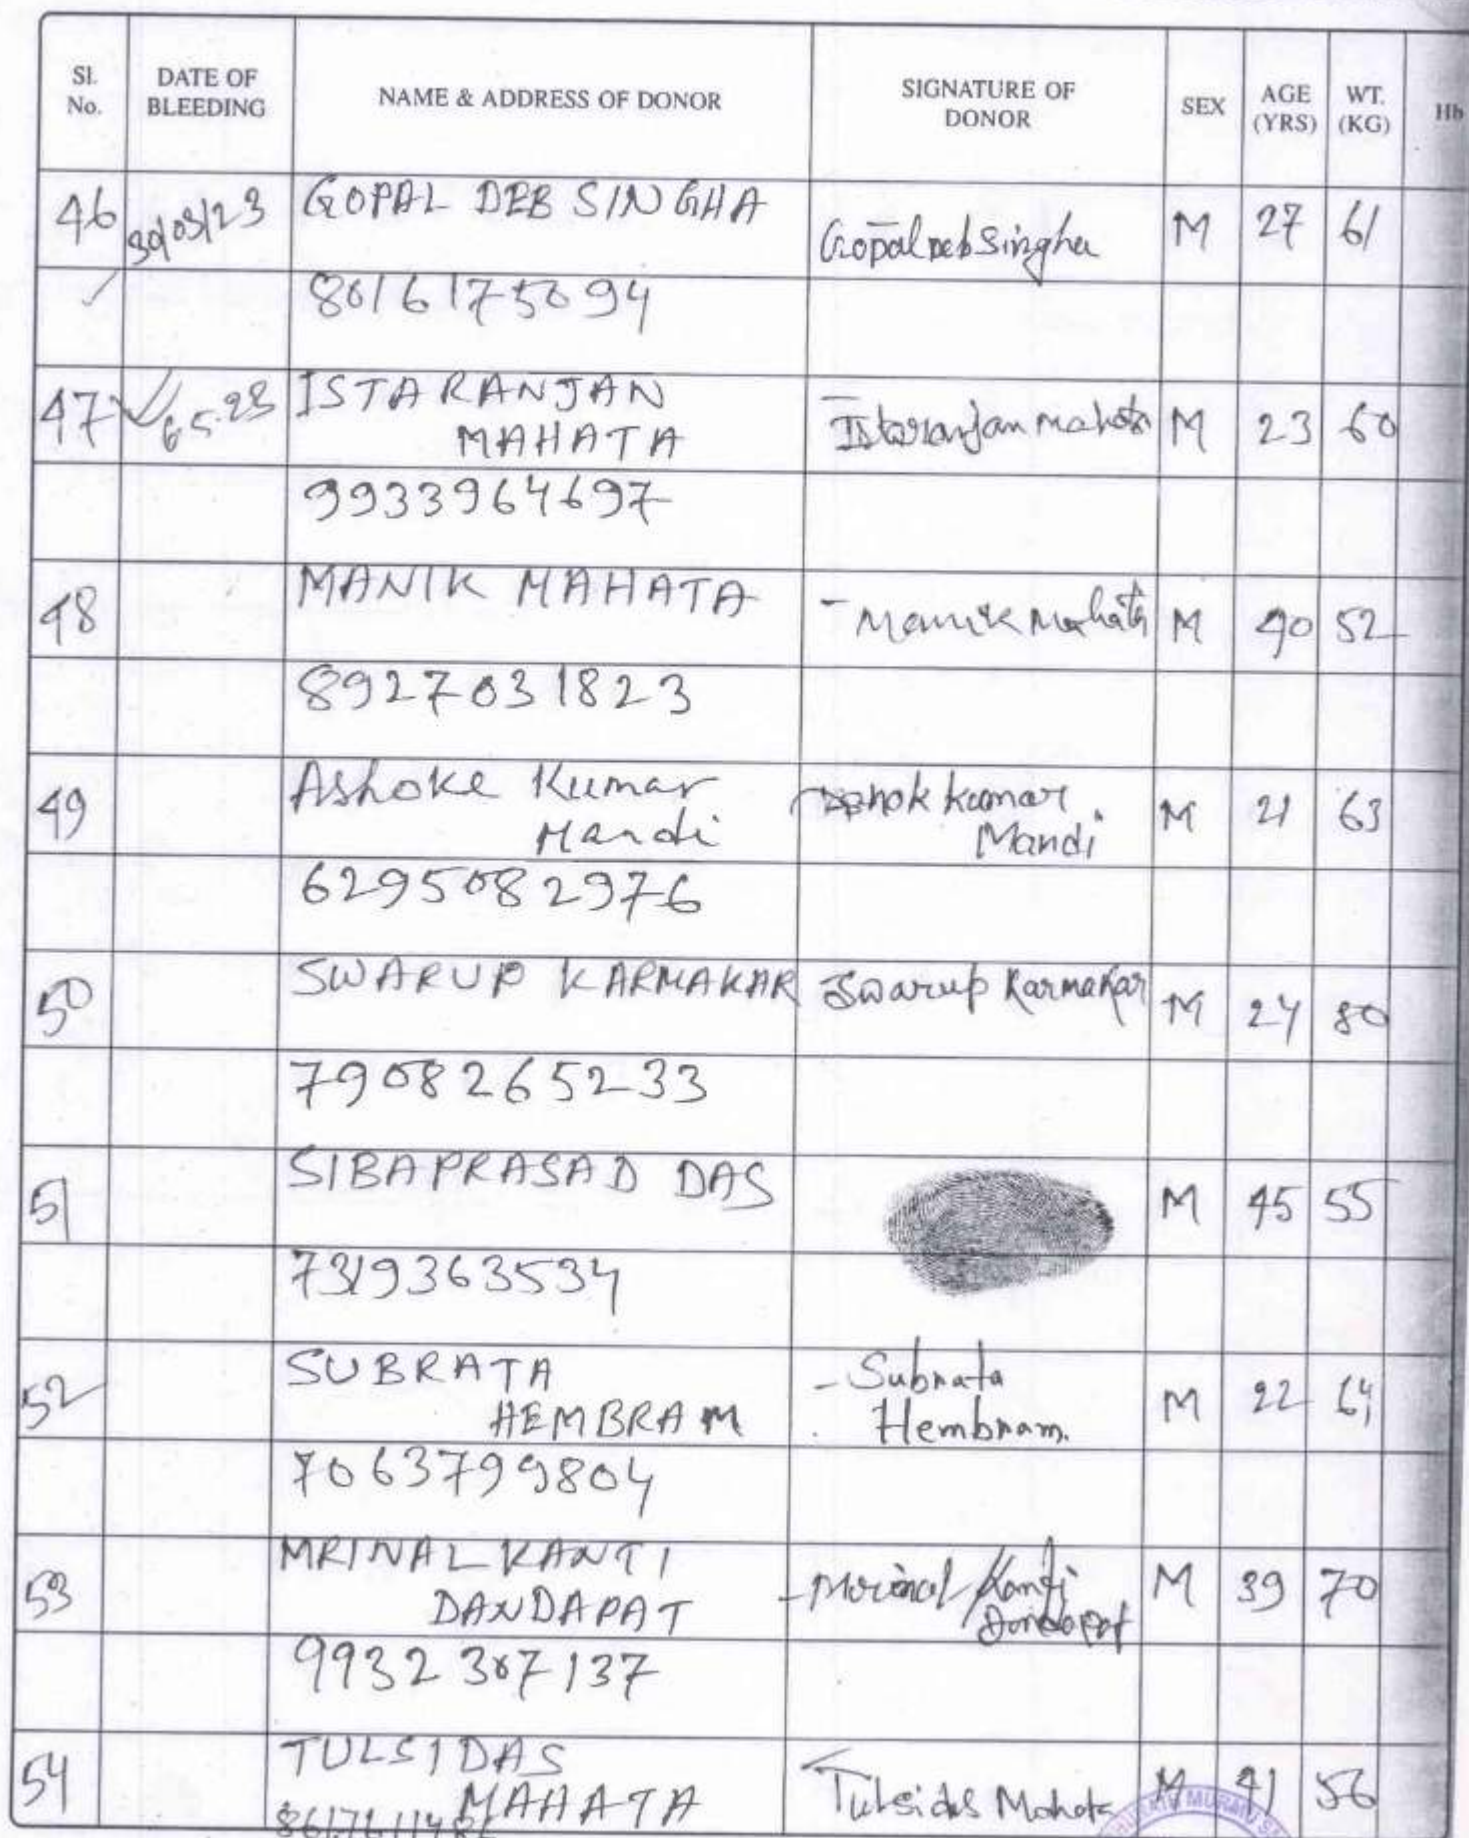 Sl. No. DATE OF BLEEDING NAME & ADDRESS OF DONOR SIGNATURE OF DONOR SEX AGE (YRS) WT. (KG) Hb
46 30/03/23 GOPAL DEB SINGHA Gopal Deb Singha M 27 61
8016175094
47 ISTARANJAN Istaranjan Mahata M 23 60
MAHATA
9933964697
48 MANIK MAHATA Manik Mahata M 40 52
8927031823
49 Ashoke Kumar Ashok kumar M 21 63
Mandi Mandi
6295082976
50 SWARUP KARMAKAR Swarup Karmakar M 24 80
7908265233
51 SIBAPRASAD DAS M 45 55
7319363534
52 SUBRATA Subrata M 22 64
HEMBRAM Hembram.
7063799804
53 MRINAL KANTI Mrinal Kanti M 39 70
DANDAPAT Dandapat
9932307137
54 TULSIDAS Tulsidas Mahata M 41 56
MAHATA